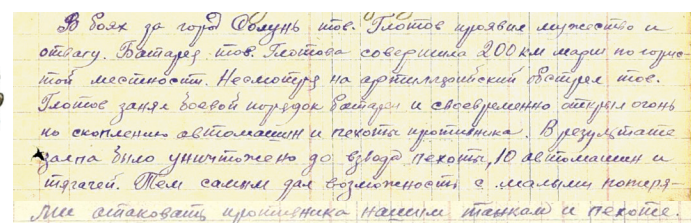 В боях за город Солунь тов. Глотов проявил мужество и
отвагу. Батарея тов. Глотова совершила 200 км марш по горис-
той местности. Несмотря на артиллерийский обстрел тов.
Глотов занял боевой порядок батареи и своевременно открыл огонь
по скоплению автомашин и пехоты противника. В результате
залпа было уничтожено до взвода пехоты, 10 автомашин и
тягачей. Тем самым дал возможность с малыми потеря-
ми атаковать противника нашим танкам и пехоте.